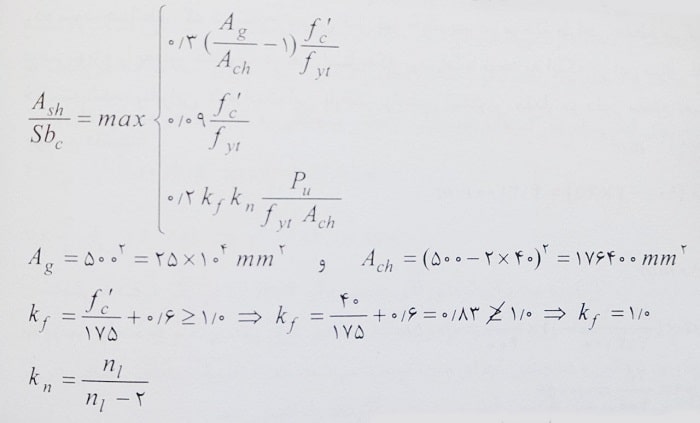 ۰/۳ (A_g / A_ch − ۱) f'_c / f_yt
A_sh / Sb_c = max { ۰/۰۹ f'_c / f_yt
۰/۲ k_f k_n P_u / f_yt A_ch
A_g = ۵۰۰^۲ = ۲۵×۱۰^۴ mm^۲ و A_ch = (۵۰۰ − ۲×۴۰)^۲ = ۱۷۶۴۰۰ mm^۲
k_f = f'_c / ۱۷۵ + ۰/۶ ≥ ۱/۰ ⇒ k_f = ۴۰ / ۱۷۵ + ۰/۶ = ۰/۸۳ ≱ ۱/۰ ⇒ k_f = ۱/۰
k_n = n_l / n_l − ۲